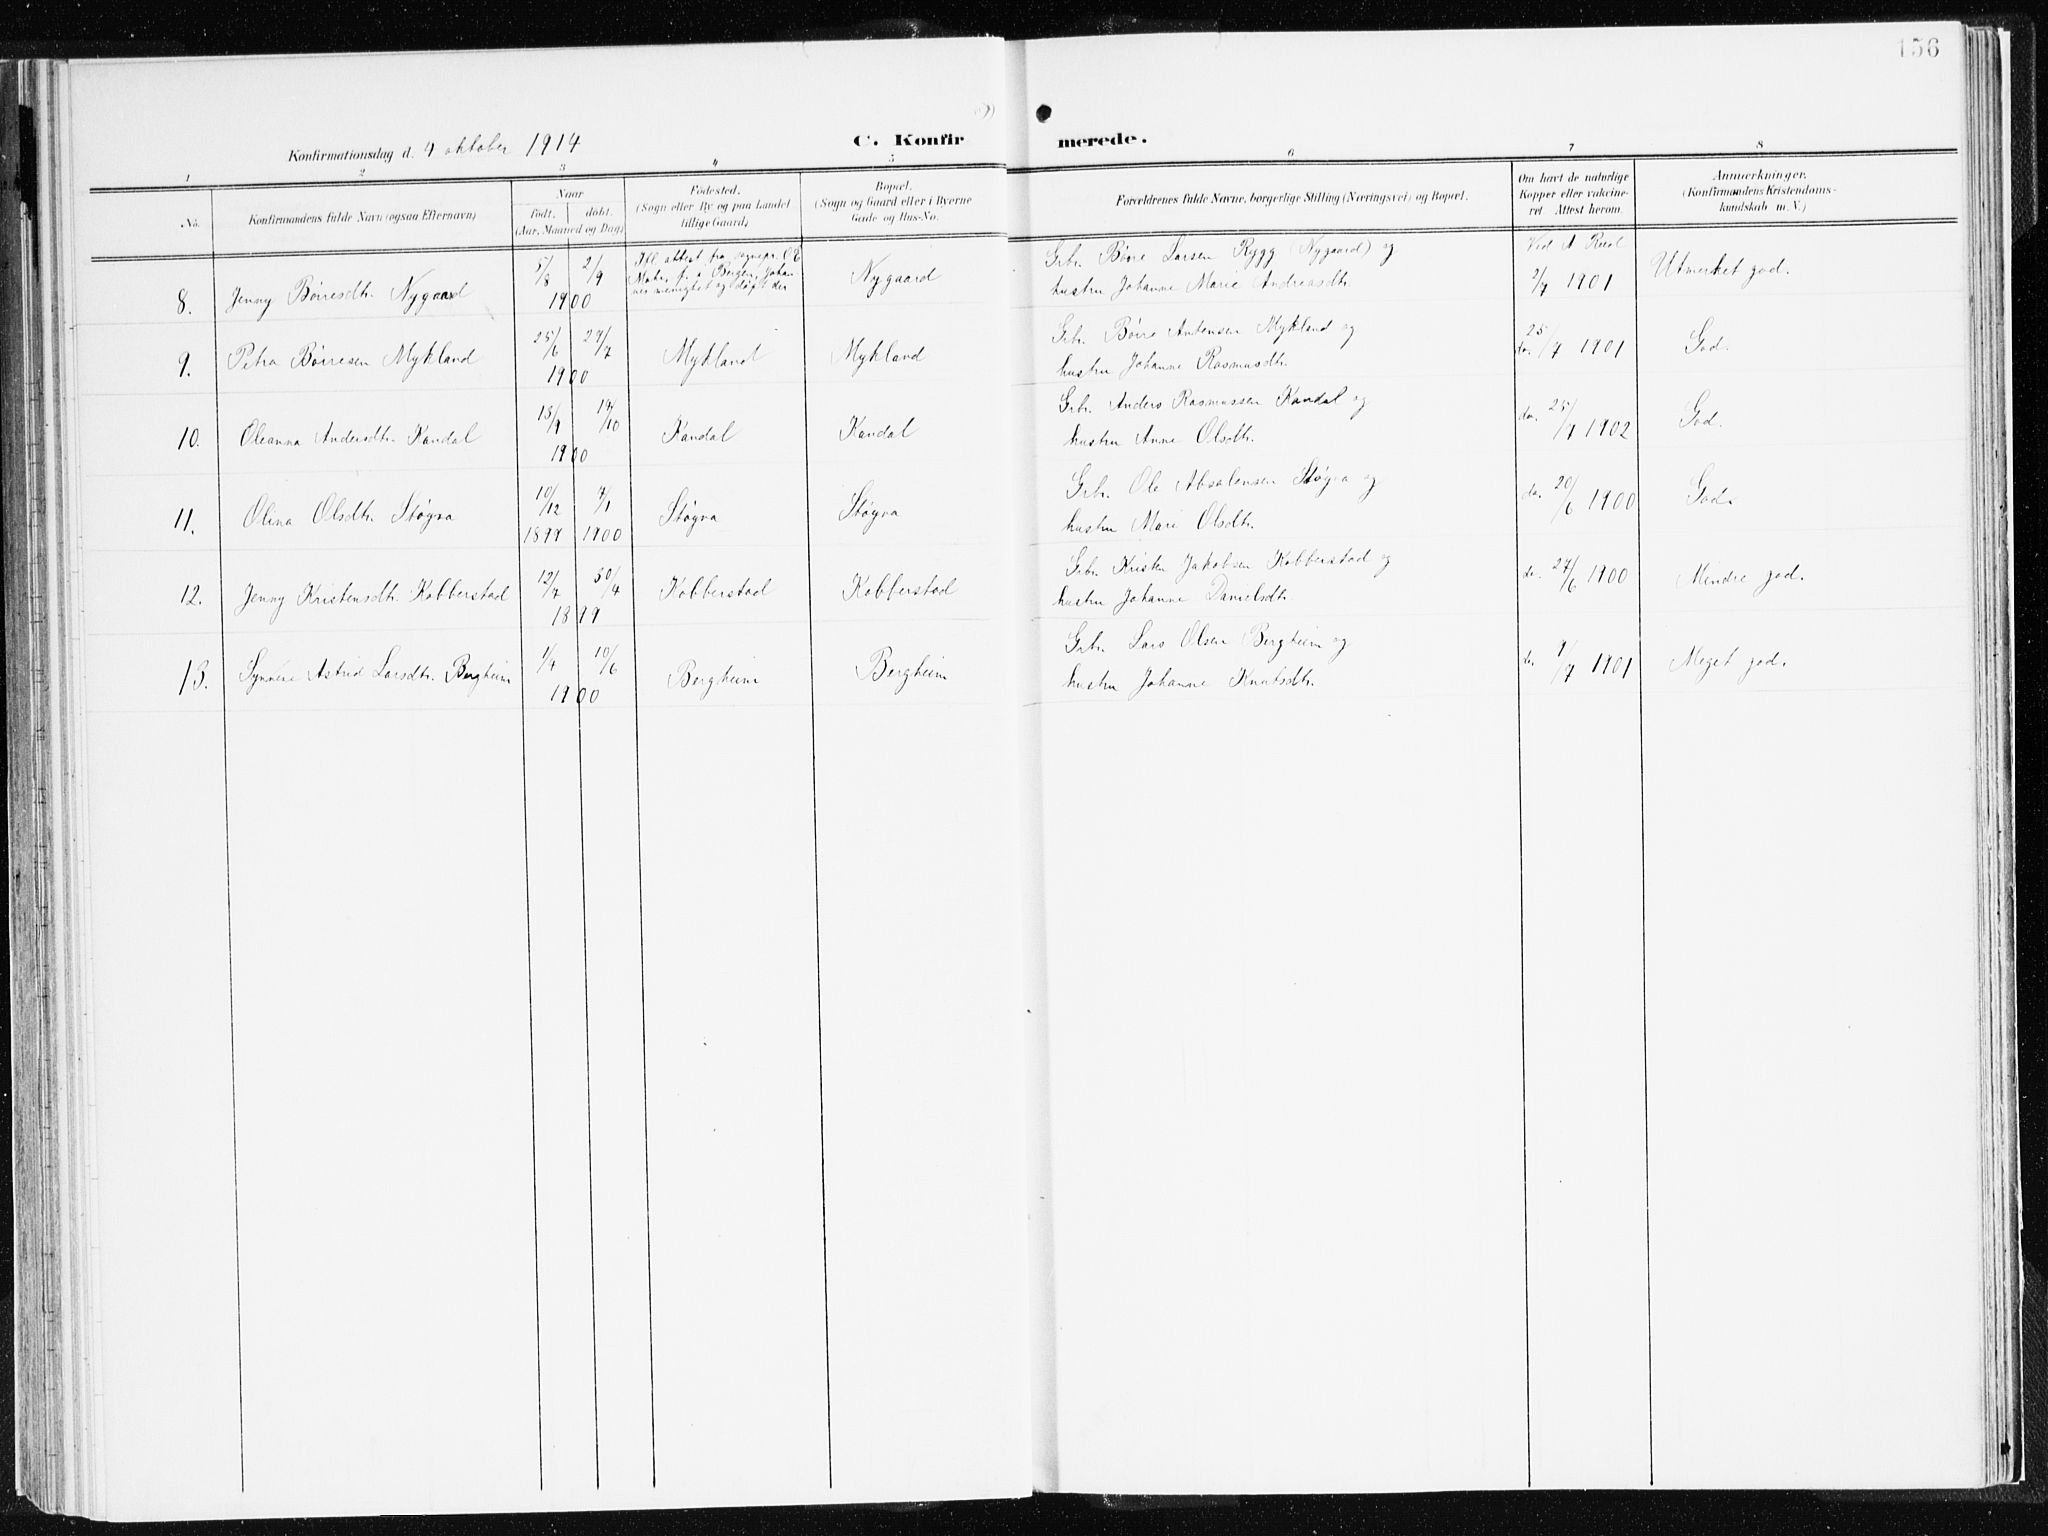 156
Konfirmationsdag d. 4 oktober 1914
C. Konfirmerede.
1 2 3 4 5 6 7 8
No.
Konfirmandens fulde Navn (ogsaa Efternavn)
Naar
født. døbt.
(Aar, Maaned og Dag)
Fødested.
(Sogn eller By og paa Landet
tillige Gaard)
Bopæl.
(Sogn og Gaard eller i Byerne
Gade og Hus-No.
Forældrenes fulde Navne, borgerlige Stilling (Næringsvei) og Bopæl.
Om havt de naturlige
Kopper eller vakcine-
ret Attest herom.
Anmærkninger.
(Konfirmandens Kristendoms-
kundskab m. V.)
8. Jenny Børresdtr. Nygaard
5/8 2/9
1900
Ifl. attest fra sognepr. O E
i Bergen, Johan
nes menighet og døpt der
Nygaard
Grbr. Børre Larsen Rygg (Nygaard) og
hustru Johanne Marie Andreasdtr.
Ved A
2/7 1901
Utmerket god.
9. Petra Børresen Mykland
25/6 29/7
1900
Mykland
Mykland
Grbr. Børre Antonsen Mykland og
hustru Johanne Rasmusdtr.
do. 25/7 1901
God.
10. Oleanna Andersdtr. Kandal
13/9 19/10
1900
Kandal
Kandal
Grbr. Anders Rasmussen Kandal og
hustru Anne Olsdtr.
do. 25/7 1902
God.
11. Olina Olsdtr. Støyva
10/12 7/1
1899 1900
Støyva
Støyva
Grbr. Ole Absalonsen Støyva og
hustru Mari Olsdtr.
do. 20/6 1900
God.
12. Jenny Kristensdtr. Kobberstad
12/4 30/4
1899
Kobberstad
Kobberstad
Grbr. Kristen Jakobsen Kobberstad og
hustru Johanne Danielsdtr.
do. 27/6 1900
Mindre god.
13. Synneve Astrid Larsdtr. Bergheim
1/4 10/6
1900
Bergheim
Bergheim
Grbr. Lars Olsen Bergheim og
hustru Johanne Knutsdtr.
do. 9/7 1901
Meget god.